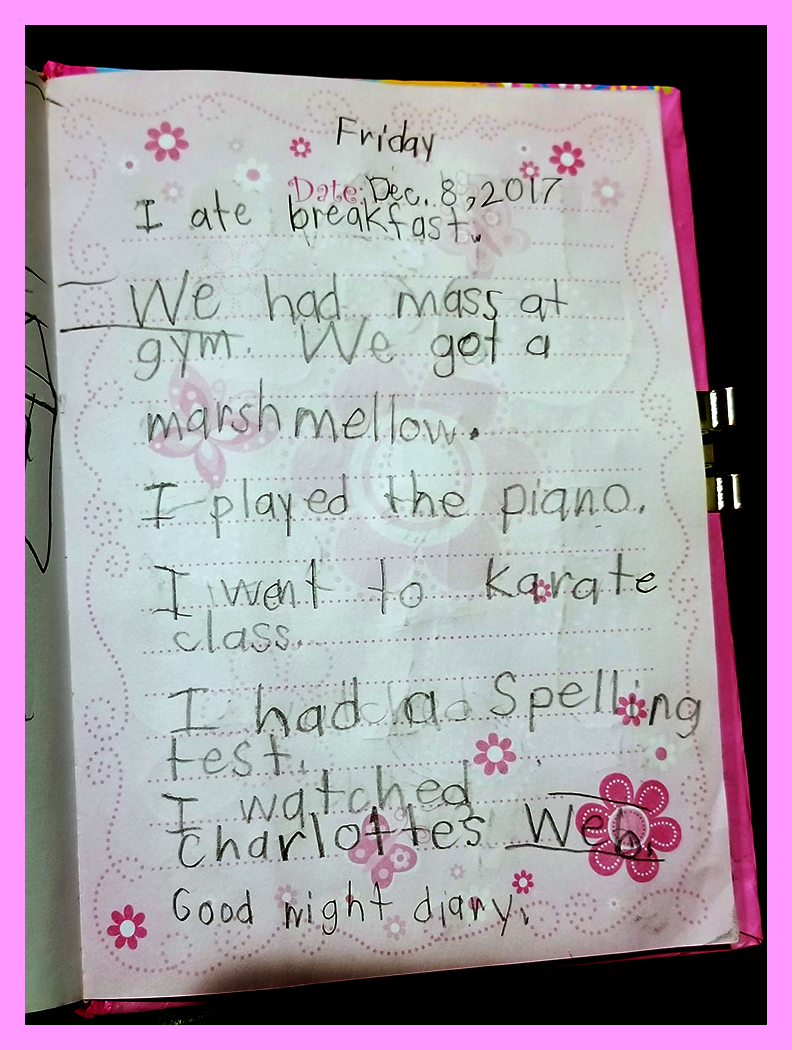 Friday
Date: Dec. 8, 2017
I ate breakfast.
We had mass at
gym. We got a
marshmellow.
I played the piano.
I went to Karate
class.
I had a Spelling
test.
I watched
Charlottes Web.
Good night diary.